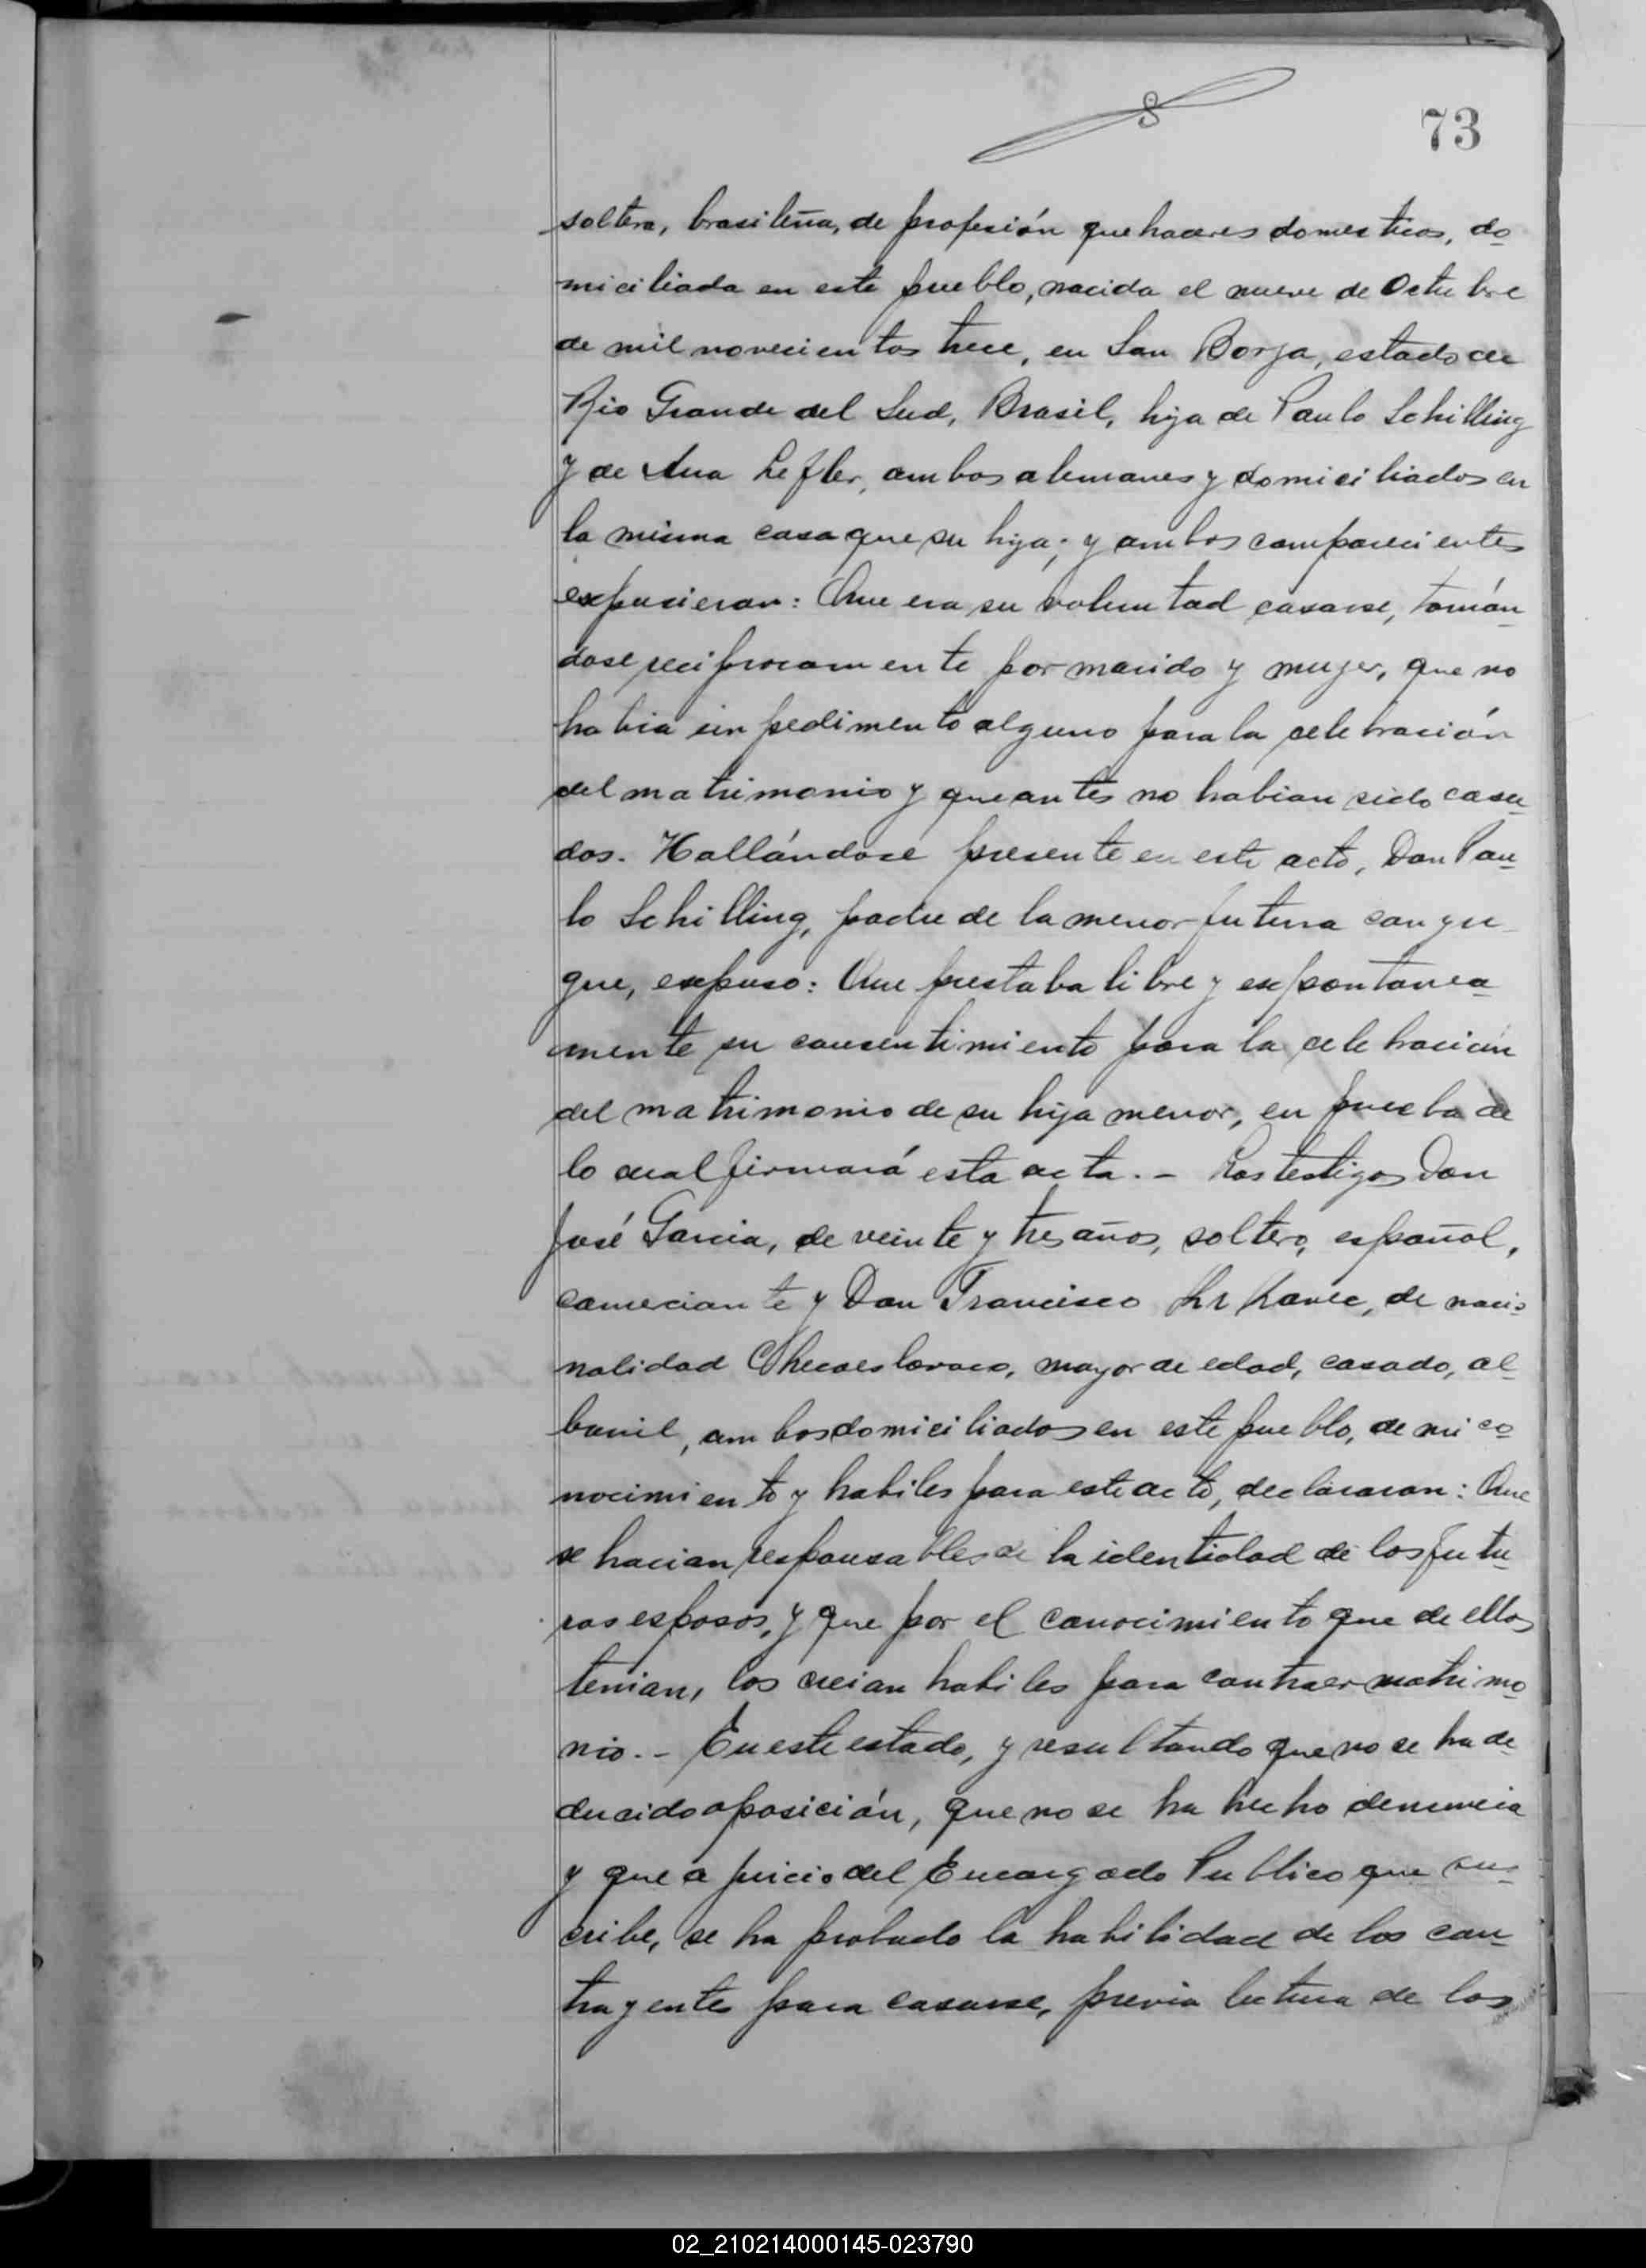 73
soltera, brasileña, de profesión quehaceres domesticos, do
miciliada en este pueblo, nacida el nueve de Octubre
de mil novecientos trece, en San Borja, estado de
Rio Grande del Sud, Brasil, hija de Paulo Schilling
y de Ana Lefler, ambos alemanes y domiciliados en
la misma casa que su hija; y ambos comparecientes
expusieron: Que era su voluntad casarse, tomán-
dose reciprocamente por marido y mujer, que no
habia impedimento alguno para la celebración
del matrimonio y que antes no habian sido casa-
dos. Hallándose presente en este acto, Don Pau-
lo Schilling, padre de la menor futura conyu-
gue, expuso: Que prestaba libre y expontanea
mente su consentimiento para la celebración
del matrimonio de su hija menor, en prueba de
lo cual firmará esta acta.- Los testigos Don
José Garcia, de veinte y tres años, soltero, español,
comerciante y Don Francisco de nacio
nalidad Checoeslovaco, mayor de edad, casado, al-
banil, ambos domiciliados en este pueblo, de mi co
nocimiento y habiles para este acto, declararon: Que
se hacian responsables de la identidad de los futu-
ros esposos, y que por el conocimiento que de ellos
tenian, los creian habiles para contraer matrimo
nio.- En este estado, y resultando que no se ha de-
ducido oposición, que no se ha hecho denuncia
y que a juicio del Encargado Publico que sus-
cribe, se ha probado la habilidad de los con-
trayentes para casarse, previa lectura de los
02_210214000145-023790